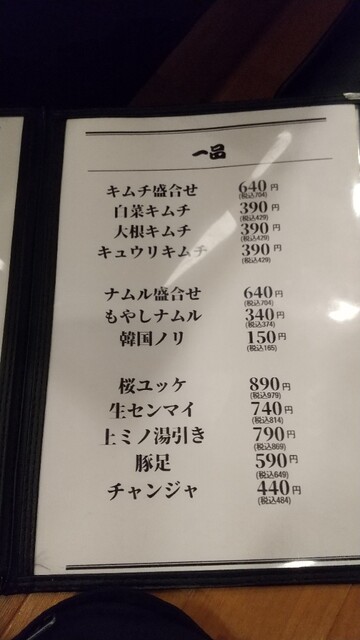 一品
キムチ盛合せ 640円
(税込704)
白菜キムチ 390円
(税込429)
大根キムチ 390円
(税込429)
キュウリキムチ 390円
(税込429)
ナムル盛合せ 640円
(税込704)
もやしナムル 340円
(税込374)
韓国ノリ 150円
(税込165)
桜ユッケ 890円
(税込979)
生センマイ 740円
(税込814)
上ミノ湯引き 790円
(税込869)
豚足 590円
(税込649)
チャンジャ 440円
(税込484)